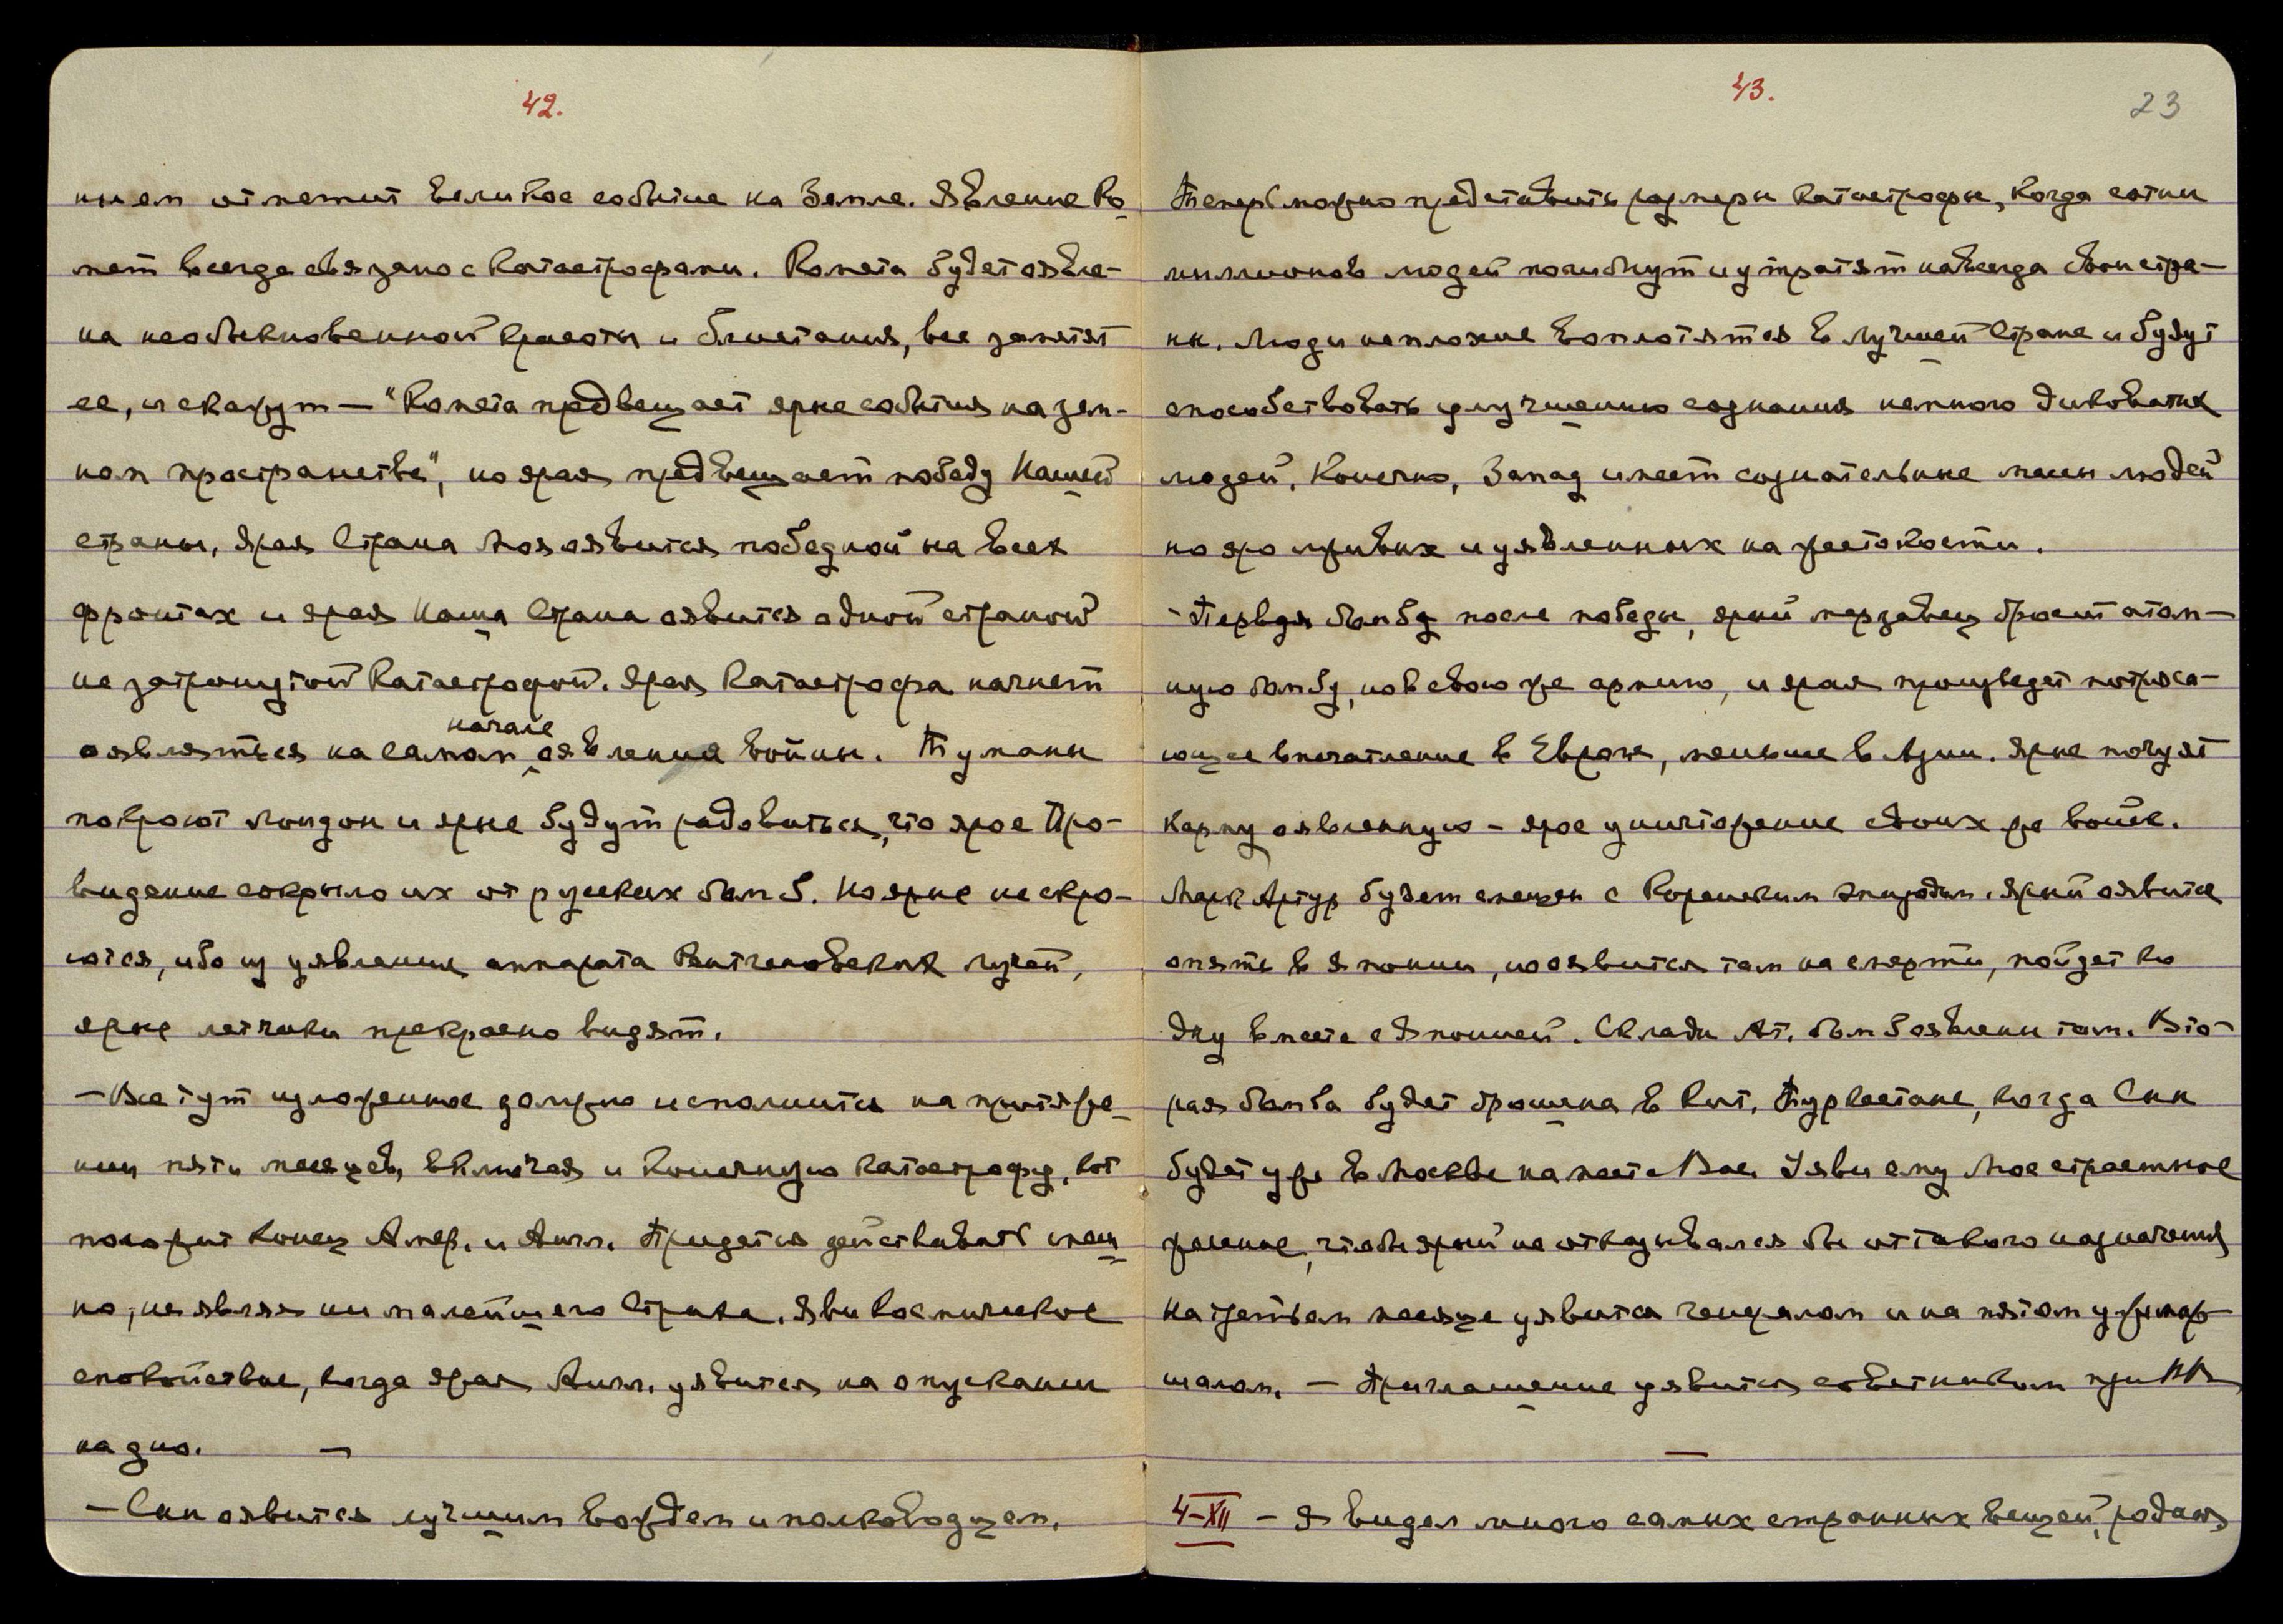 42.
ием отметит великое событие на Земле. Явление Ко-
мет всегда связано с Катастрофами. Комета будет оявле-
на необыкновенной красоты и блистания, все заметят
ее, и скажут — "Комета предвещает ярые события на зем-
ном пространстве", но ярая предвещает победу Нашей
страны. Ярая Страна Моя оявится победной на всех
фронтах и ярая Наша Страна оявится одной страной
не затронутой Катастрофой. Ярая Катастрофа начнет
оявляться на самом начале оявления войны. Туманы
покроют Лондон и ярые будут радоваться, что ярое Про-
видение сокрыло их от русских бомб. Но ярые не скро-
ются, ибо из уявление аппарата Рентгеновских лучей,
ярые летчики прекрасно видят.
— Все тут изложенное должно исполнится на протяже-
нии пяти месяцев, включая и Конечную Катастрофу, кот
положит конец Амер. и Англ. Придется действовать спеш-
но, не являя ни малейшего Страха. Яви Космическое
спокойствие, когда ярая Англ. уявится на опускании
на дно. —
— Снн оявится лучшим вождем и полководцем.
43.
23
Теперь можно представить размеры Катастрофы, когда сотни
миллионов людей погибнут и утратят навсегда свои стра-
ны. Люди неплохие воплотятся в лучшей Стране и будут
способствовать улучшению сознания немного диковатых
людей. Конечно, Запад имеет сознательные массы людей
но яро лживых и уявленных на жестокости.
— Первую бомбу после победы, ярый мерзавец бросит атом-
ную бомбу, но в свою же армию, и ярая произведет потряса-
ющее впечатление в Европе, меньше в Азии. Ярые почуят
Карму оявленную — ярое уничтожение своих же войск.
Марк Артур будет смещен с Корейским эпизодом. Ярый оявится
опять в Японии, но оявится там на смерти, пойдет ко
дну вместе с Японией. Склады Ат. бомб оявлены там. Вто-
рая бомба будет брошена в Кит. Туркестане, когда Снн
будет уже в Москве на месте Вас. Уяви ему Мое страстное
желание, чтобы ярый не отказывался бы от такого назначения
На третьем месяце уявится генералом и на пятом уже мар-
шалом. — Приглашение уявится советником при
—
4-XII — Я видел много самых странных вещей,